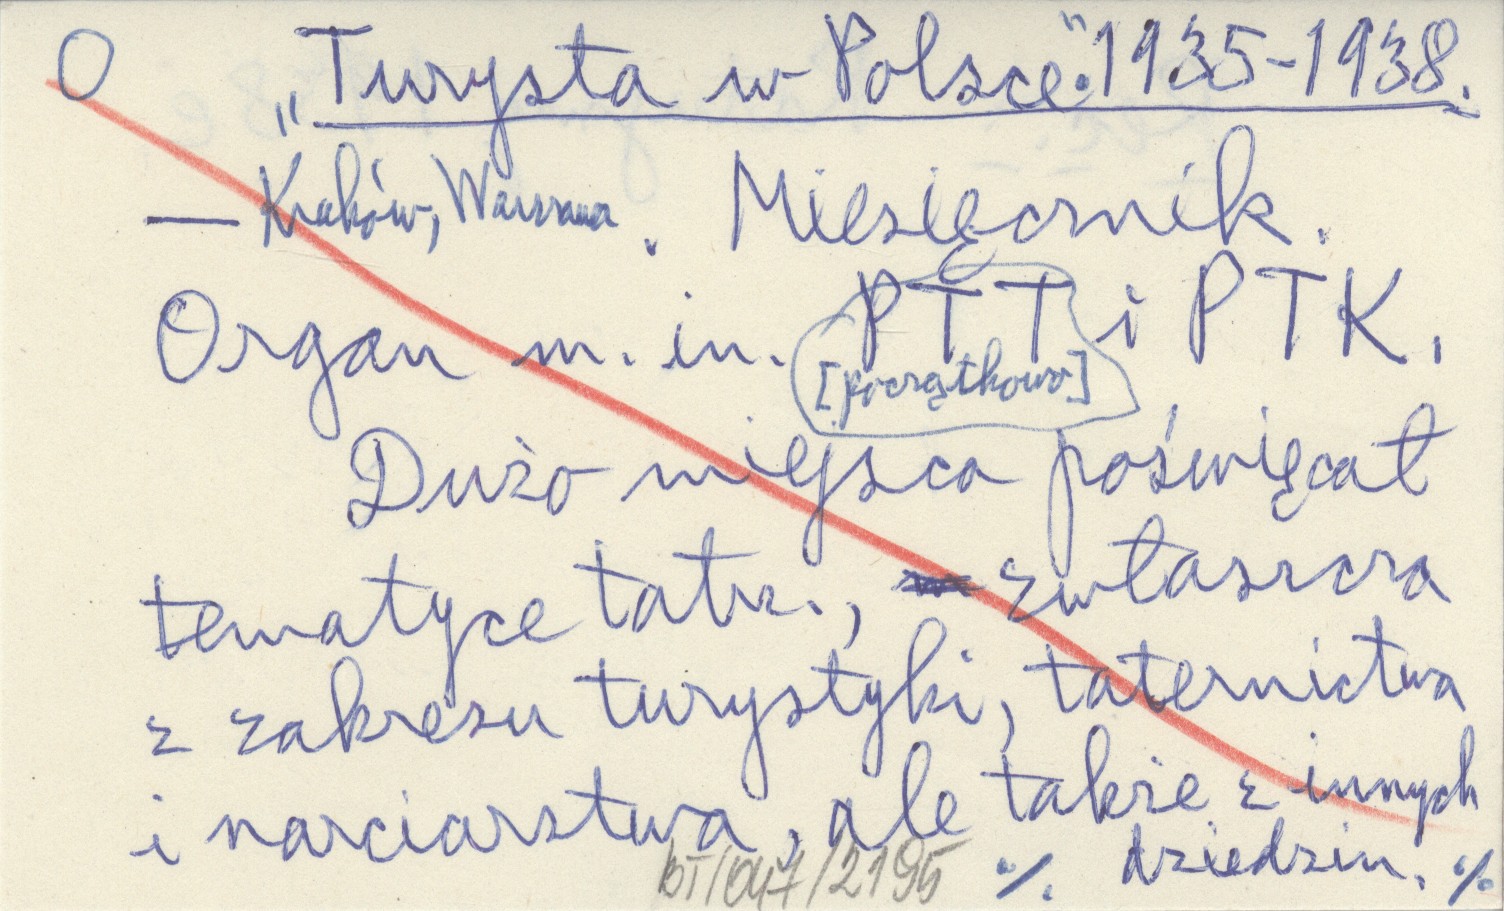 O „Turysta w Polsce". 1935-1938.
— Kraków, Warszawa. Miesięcznik.
Organ m. in. PTT i PTK,
[początkowo]
Dużo miejsca poświęcał
tematyce tatrz., zwłaszcza
z zakresu turystyki, taternictwa
i narciarstwa, ale także z innych
dziedzin. %
BT/047/2195 %